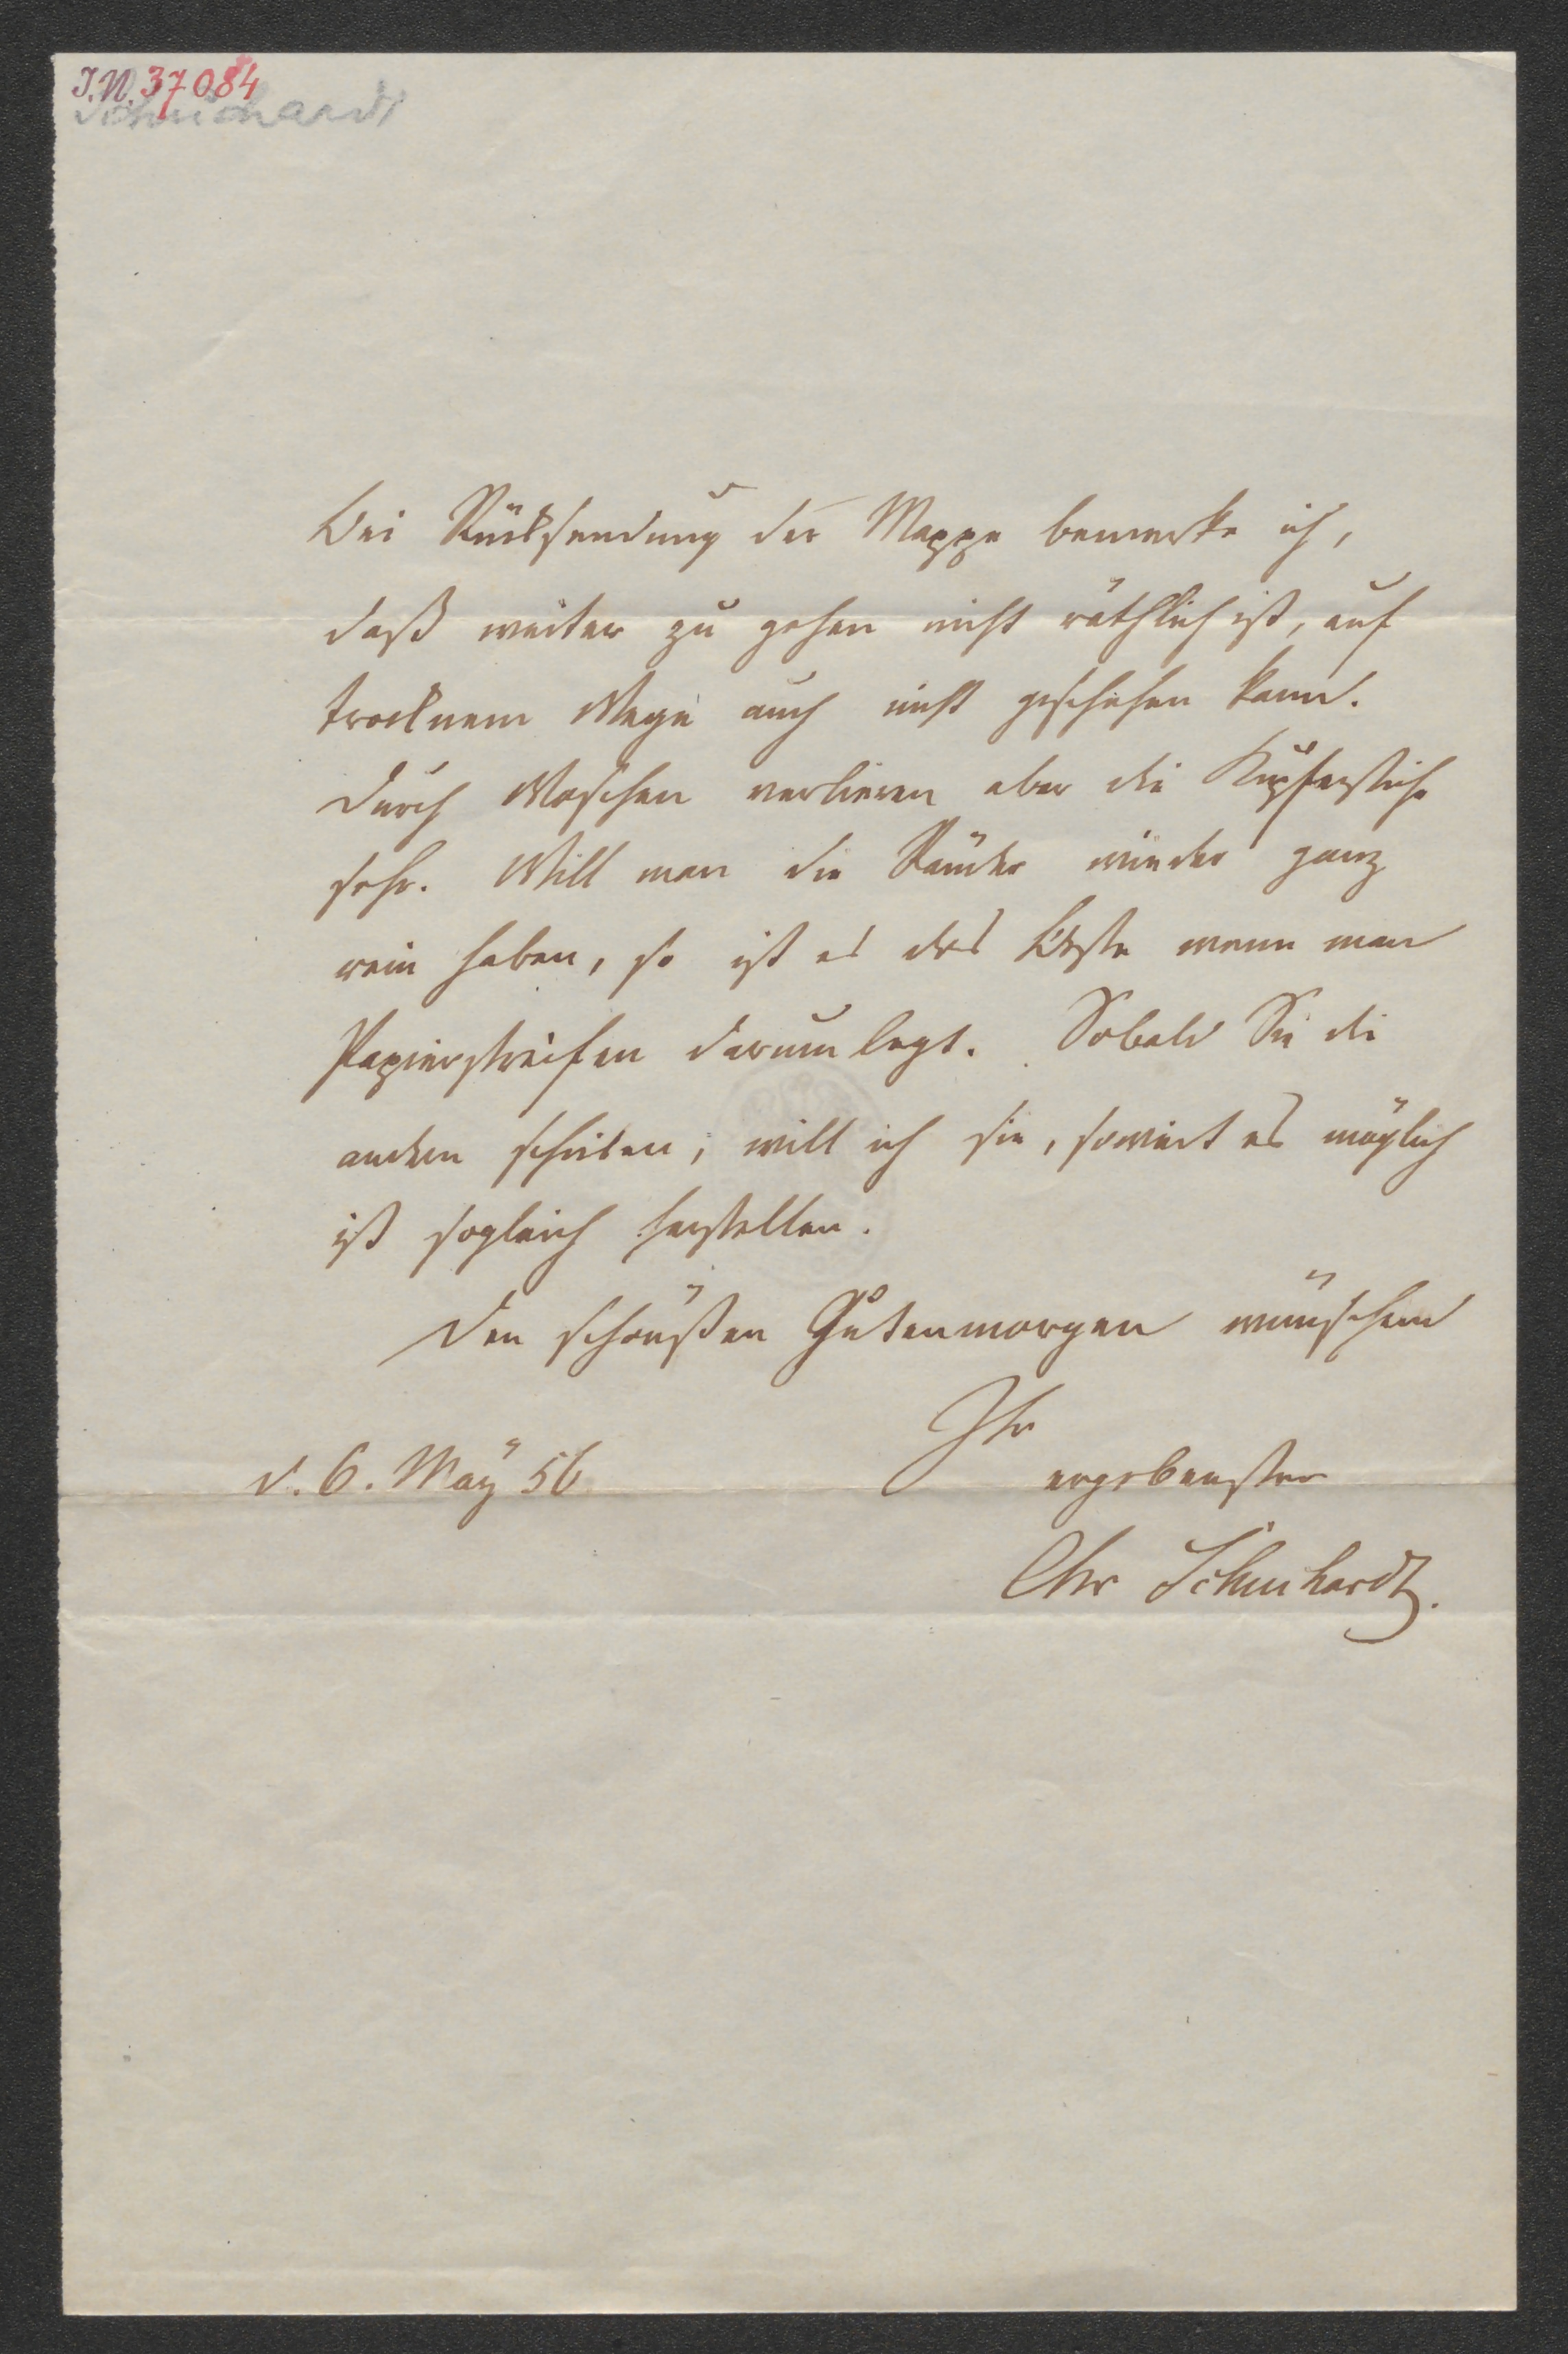 I.N. 37084
Schuchardt
Bei Rücksendung der Mappe bemerke ich,
daß weiter zu gehen nicht räthlich ist, auf
trocknem Wege auch nicht geschehen kann.
Durch Waschen verlieren aber die Kupferstiche
sehr. Will man die Ränder wieder ganz
rein haben, so ist es das Beste wenn man
Papierstreifen darum legt. Sobald Sie die
andern schicken, will ich sie, soweit es möglich
ist sogleich herstellen.
Den schönsten Gutenmorgen wünschend
Ihr
d. 6. May 56
ergebenster
Chr Schuchardt.